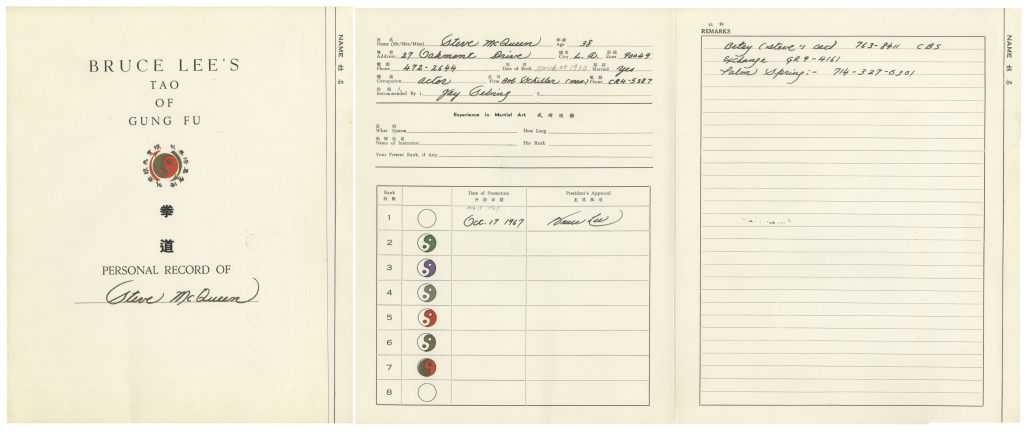 BRUCE LEE'S
TAO
OF
GUNG FU
拳
道
PERSONAL RECORD OF
Steve McQueen
NAME 姓名
姓名 Name (Mr/Mrs/Miss) Steve McQueen 年齡 Age 38
Address 27 Oakmont Drive City L.A. Zone 90049
Phone 472-2644 Date of Birth March 24, 1930 Married Yes
Occupation actor Firm Bob Schiller (mor) Phone CR4-5387
Recommended By 1. Jay Sebring 2.
Experience in Martial Art 武術經驗
What System How Long
Name of Instructor His Rank
Your Present Rank, if Any
Rank Date of Promotion President's Approval
1 Oct. 17 1967 Bruce Lee
2
3
4
5
6
7
8
REMARKS
Betsy (Steve's sec) 763-8411 CBS
Exchange GR9-4161
Palm Spring:- 714-327-0301
NAME 姓名